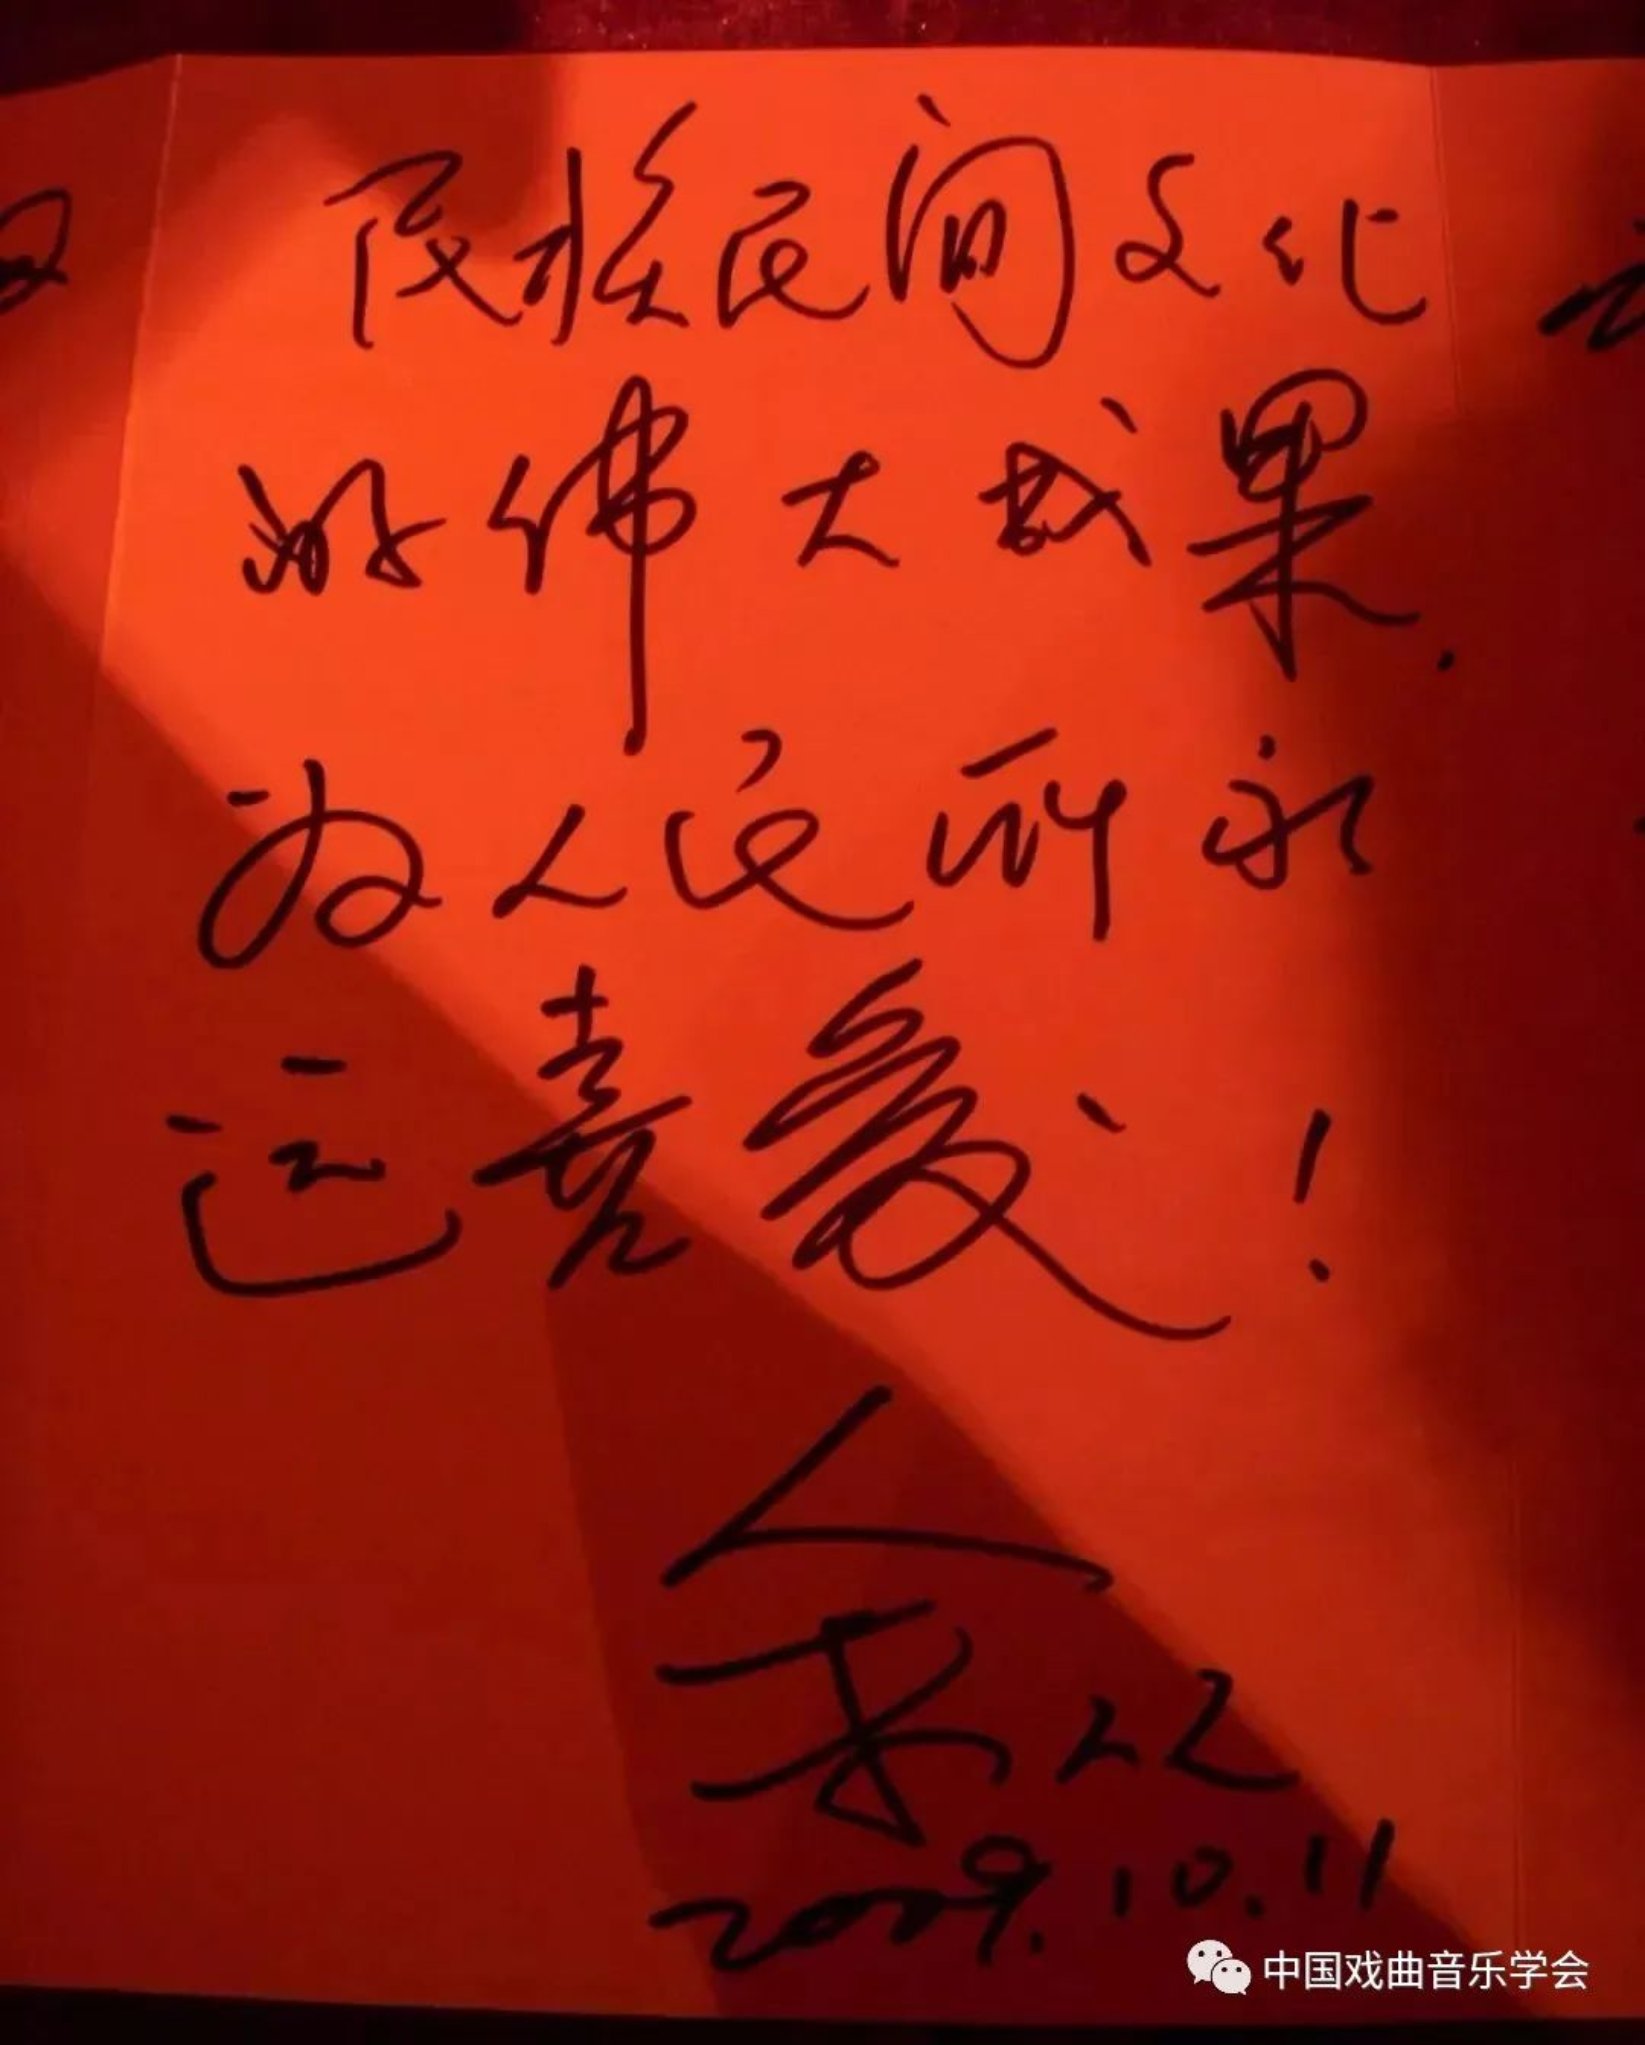 民族民间文化
的伟大成果.
为人民所永
远喜爱!
余从
2009.10.11
中国戏曲音乐学会